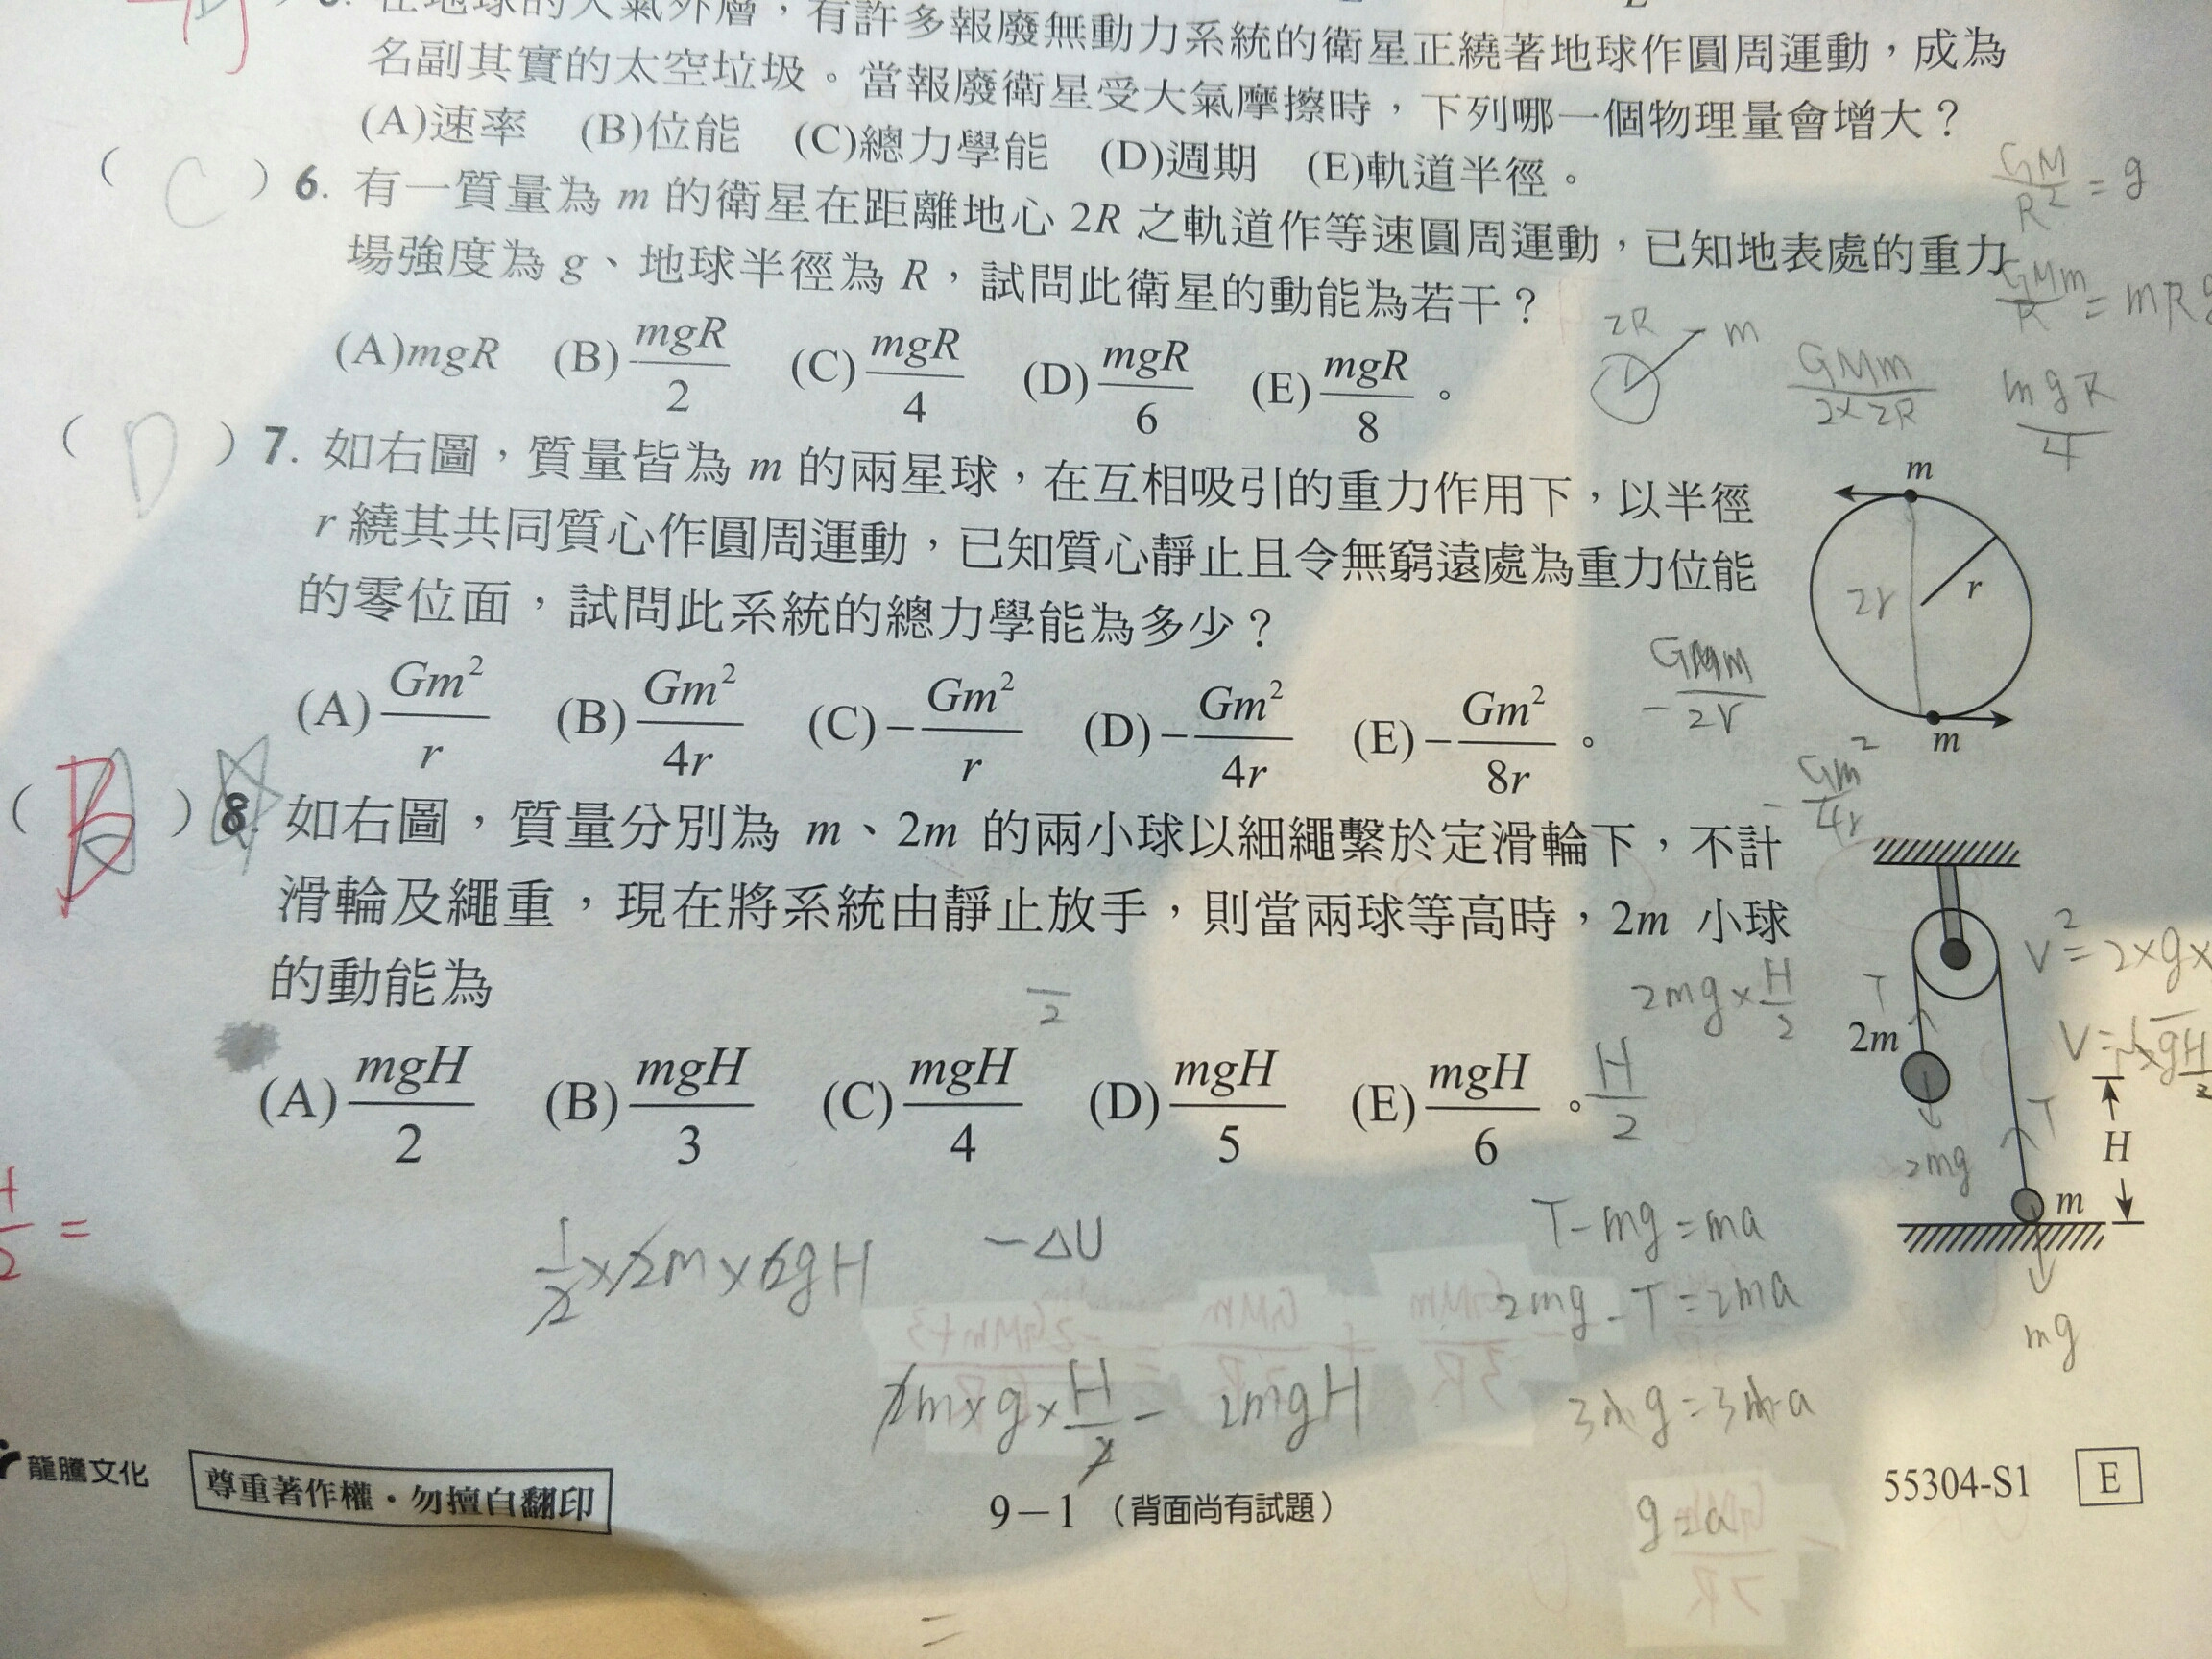 5. 在地球的大氣外層，有許多報廢無動力系統的衛星正繞著地球作圓周運動，成為
名副其實的太空垃圾。當報廢衛星受大氣摩擦時，下列哪一個物理量會增大？
(A)速率 (B)位能 (C)總力學能 (D)週期 (E)軌道半徑。
( C ) 6. 有一質量為 m 的衛星在距離地心 2R 之軌道作等速圓周運動，已知地表處的重力
場強度為 g、地球半徑為 R，試問此衛星的動能為若干？
(A)mgR (B)mgR/2 (C)mgR/4 (D)mgR/6 (E)mgR/8。
GM/R² = g
GMm/R = mRg
2R m
GMm/2×2R
mgR/4
( D ) 7. 如右圖，質量皆為 m 的兩星球，在互相吸引的重力作用下，以半徑
r 繞其共同質心作圓周運動，已知質心靜止且令無窮遠處為重力位能
的零位面，試問此系統的總力學能為多少？
(A)Gm²/r (B)Gm²/4r (C)−Gm²/r (D)−Gm²/4r (E)−Gm²/8r。
m
2r r
m
−GMm/2r
−Gm²/4r
( B ) 8. 如右圖，質量分別為 m、2m 的兩小球以細繩繫於定滑輪下，不計
滑輪及繩重，現在將系統由靜止放手，則當兩球等高時，2m 小球
的動能為
(A)mgH/2 (B)mgH/3 (C)mgH/4 (D)mgH/5 (E)mgH/6。
2mg×H/2
H/2
V²=2×g×
T
2m
2mg
T
H
m
mg
1/2×2m×6gH
−ΔU
T−mg=ma
2mg−T=2ma
2m×g×H/2− 2mgH
3mg=3ma
g=a
龍騰文化
尊重著作權・勿擅自翻印
9−1 （背面尚有試題）
55304-S1 E